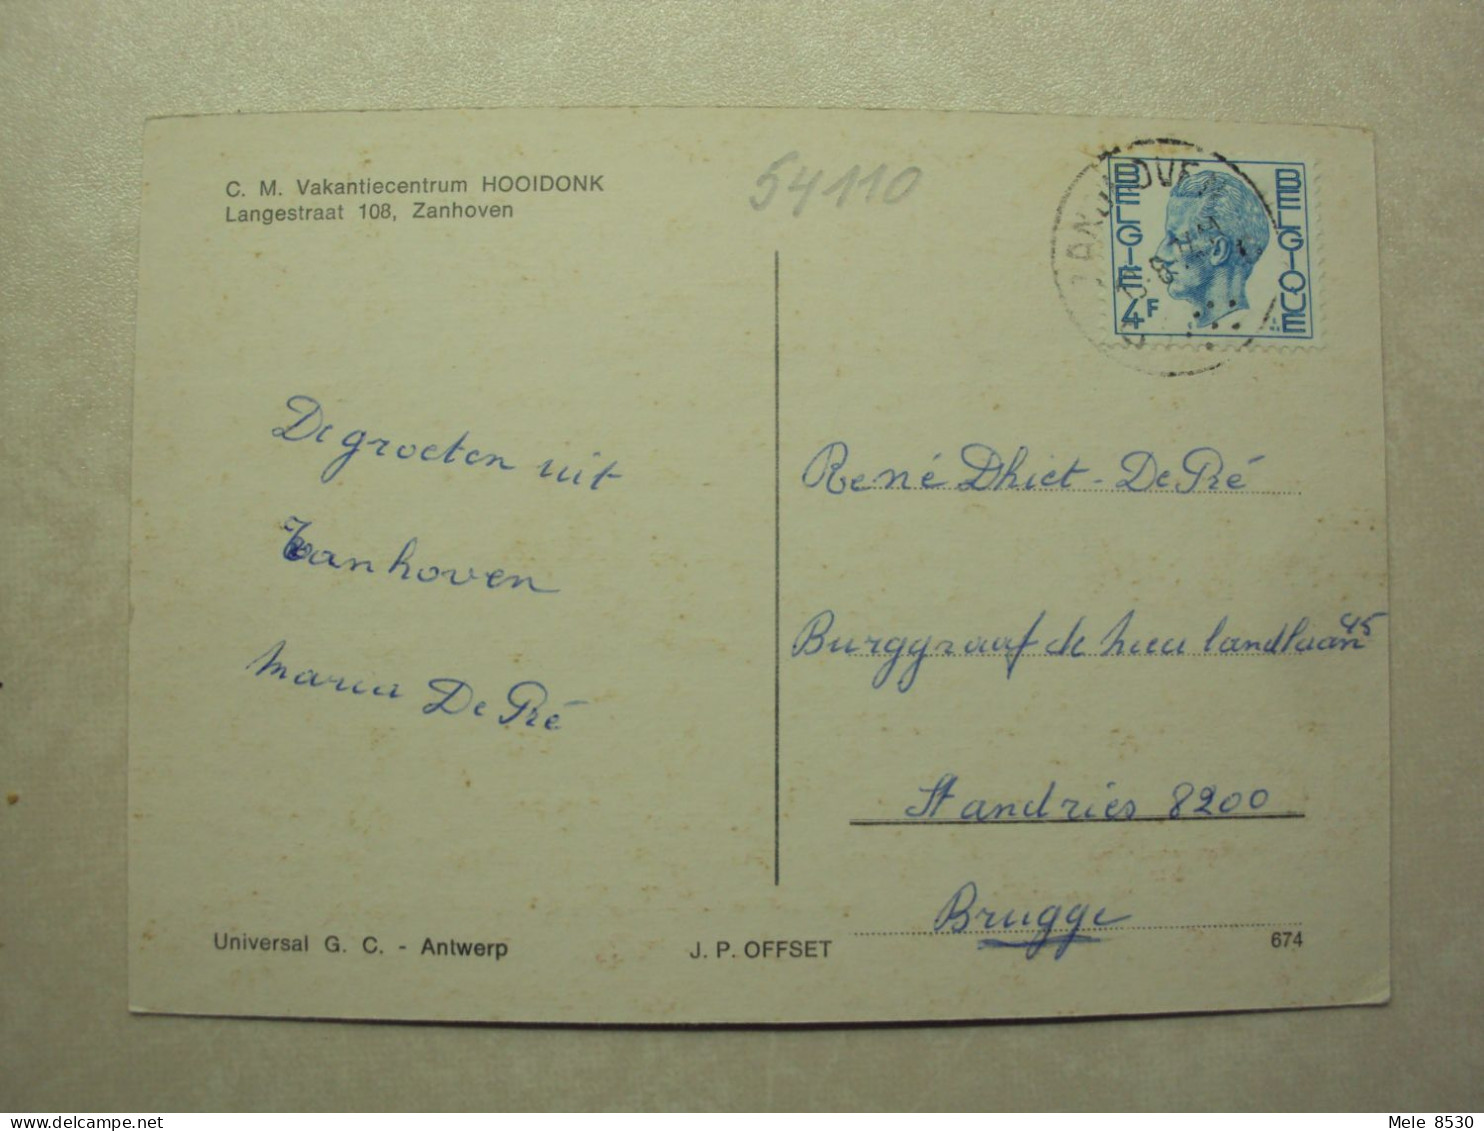 C. M. Vakantiecentrum HOOIDONK
Langestraat 108, Zanhoven
54110
BELGIE
BELGIQUE
4F
De groeten uit
Zanhoven
Maria De Pré
René Dhiet - De Pré
Burggraaf de landlaan 45
St andries 8200
Brugge
Universal G. C. - Antwerp
J. P. OFFSET
674
delcampe.net
Mele 8530